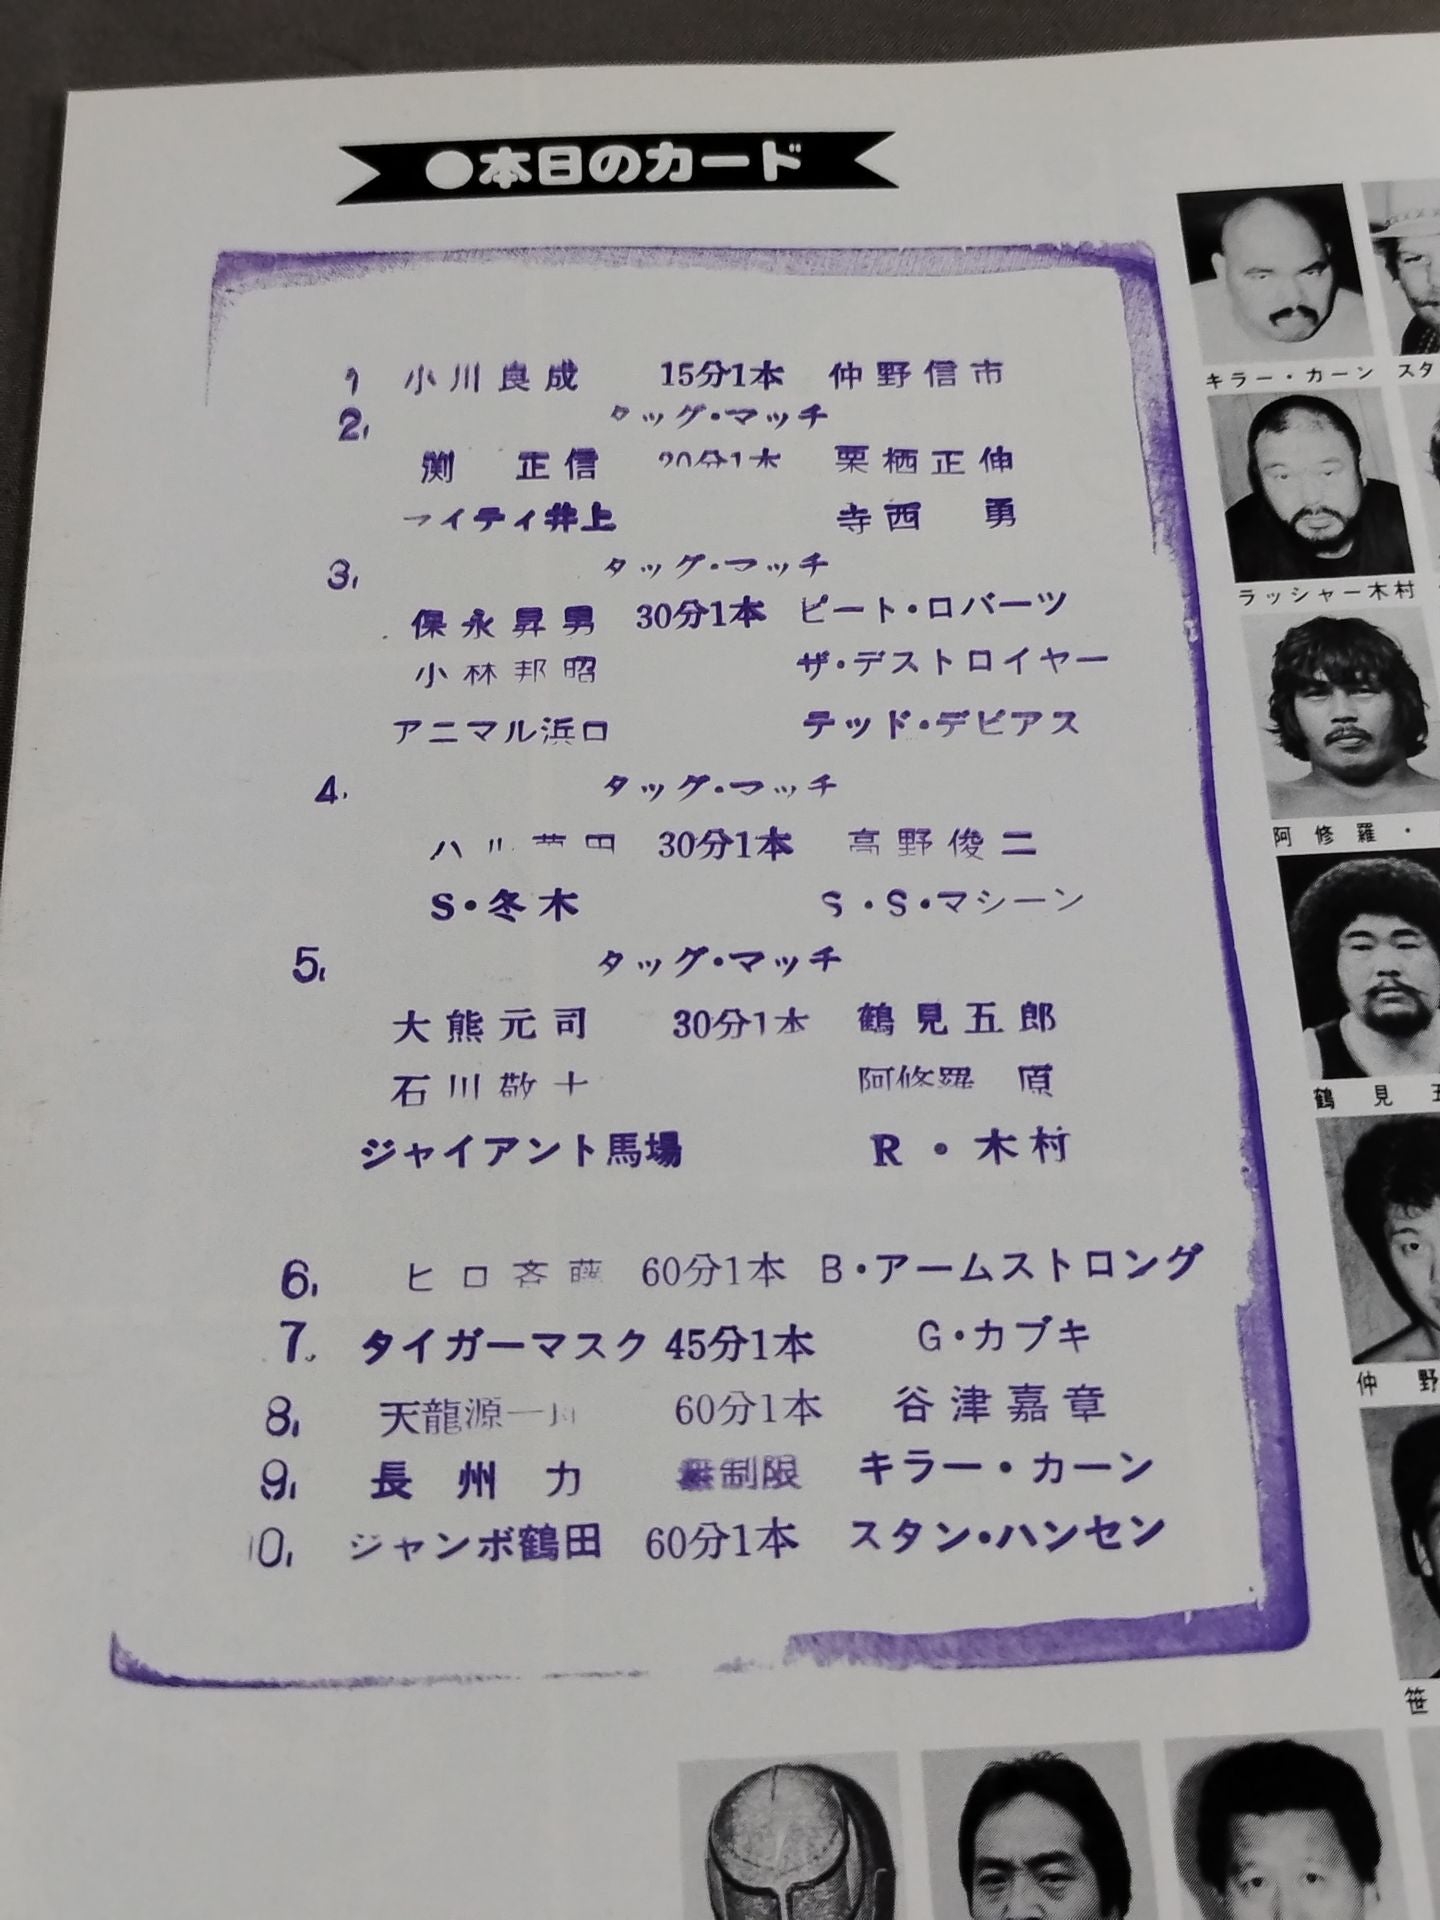 ●本日のカード
1 小川良成 15分1本 仲野信市
2, タッグ・マッチ
渕 正信 20分1本 栗栖正伸
マイティ井上 寺西 勇
3, タッグ・マッチ
保永昇男 30分1本 ピート・ロバーツ
小林邦昭 ザ・デストロイヤー
アニマル浜口 テッド・デビアス
4, タッグ・マッチ
ハル薗田 30分1本 高野俊二
S・冬木 S・S・マシーン
5, タッグ・マッチ
大熊元司 30分1本 鶴見五郎
石川敬士 阿修羅 原
ジャイアント馬場 R・木村
6, ヒロ斉藤 60分1本 B・アームストロング
7, タイガーマスク 45分1本 G・カブキ
8, 天龍源一郎 60分1本 谷津嘉章
9, 長州力 無制限 キラー・カーン
10, ジャンボ鶴田 60分1本 スタン・ハンセン
キラー・カーン
スタ
ラッシャー木村
阿修羅・
鶴見五
仲野
笹